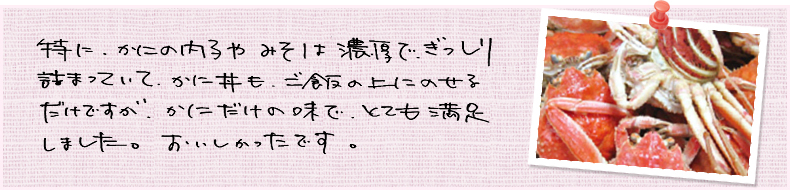 特に、かにの内子や みそは 濃厚で、ぎっしり
詰まっていて、かに丼も、ご飯の上にのせる
だけですが、かにだけの味で、とても満足
しました。 おいしかったです。